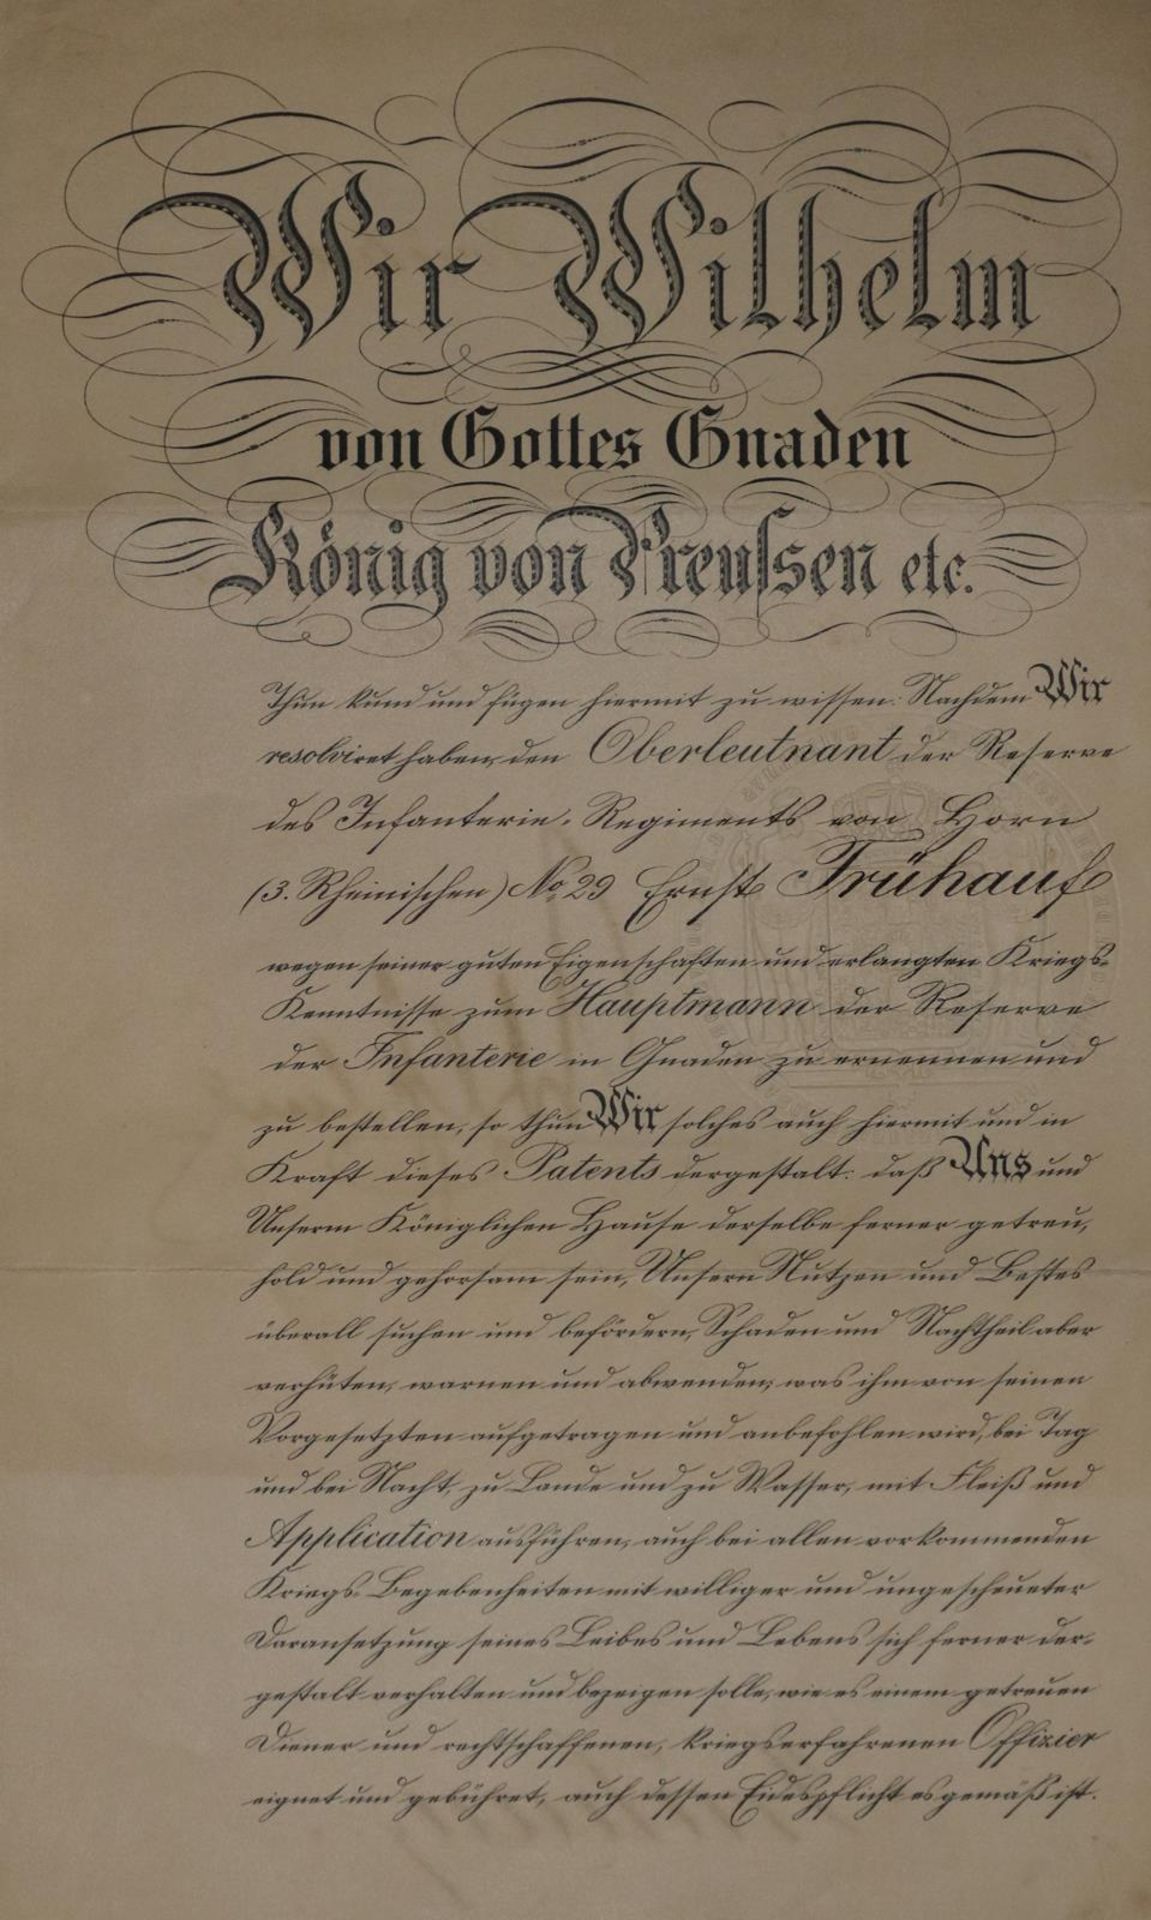 Wir Wilhelm
von Gottes Gnaden
König von Preußen etc.
Thun kund und fügen hiermit zu wissen: Nachdem Wir
resolviret haben, den Oberleutnant der Reserve
des Infanterie-Regiments von Horn
(3. Rheinischen) No. 29 Ernst Frühauf
wegen seiner guten Eigenschaften und erlangten Kriegs-
Kenntnisse zum Hauptmann der Reserve
der Infanterie in Gnaden zu ernennen und
zu bestellen, so thun Wir solches auch hiermit und in
Kraft dieses Patents dergestalt: daß Uns und
Unserm Königlichen Hause derselbe ferner getreu,
hold und gehorsam sein, Unsern Nutzen und Bestes
überall suchen und befördern, Schaden und Nachtheil aber
verhüten, warnen und abwenden, was ihm von seinen
Vorgesetzten aufgetragen und anbefohlen wird, bei Tag
und bei Nacht, zu Lande und zu Wasser, mit Fleiß und
Application ausführen, auch bei allen vorkommenden
Kriegs-Begebenheiten mit williger und ungescheueter
Daransetzung seines Leibes und Lebens sich ferner der-
gestalt verhalten und bezeigen solle, wie es einem getreuen
Diener und rechtschaffenen, kriegserfahrenen Offizier
eignet und gebühret, auch dessen Eidespflicht es gemäß ist.